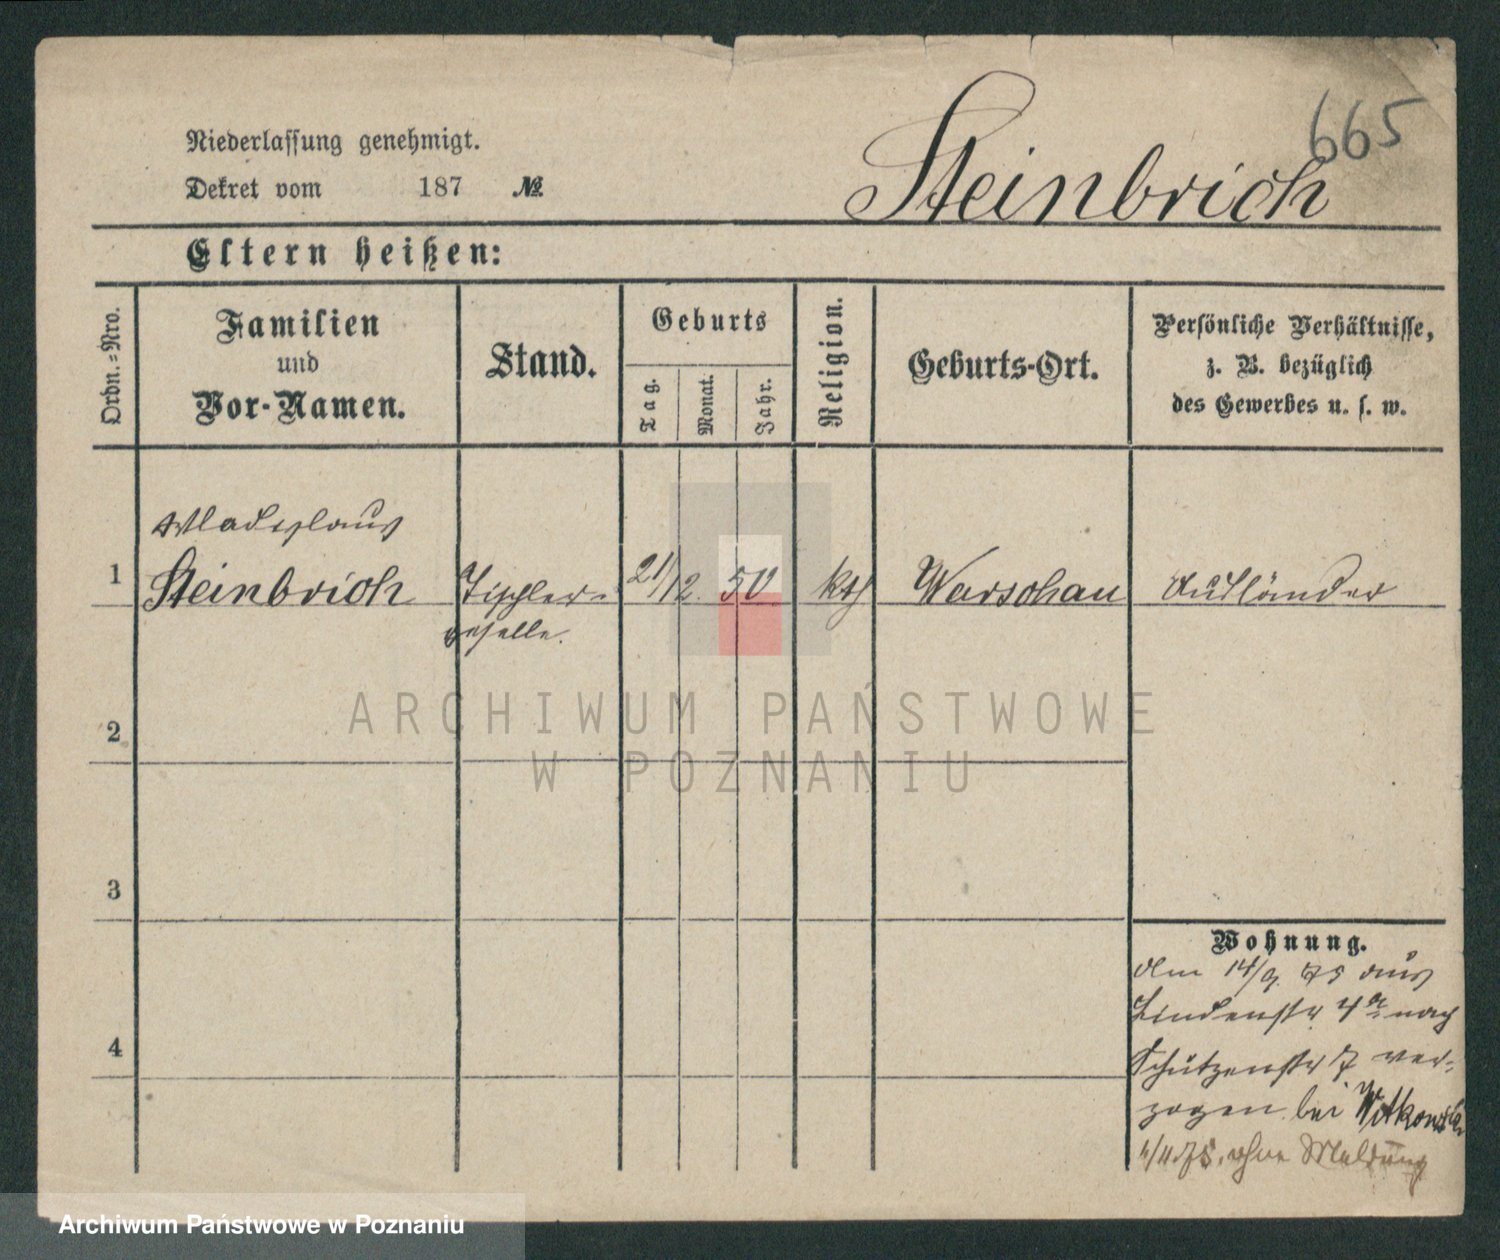 665
Niederlassung genehmigt.
Dekret vom 187 №
Steinbrich
Eltern heißen:
Ordn.=Nro.
Familien
und
Vor-Namen.
Stand.
Geburts
Tag.
Monat.
Jahr.
Religion.
Geburts-Ort.
Persönliche Verhältnisse,
z. B. bezüglich
des Gewerbes u. s. w.
Wladislaus
1 Steinbrich Tischler- 21/12. 50 kth Warschau Ausländer
geselle.
2
3
4
Wohnung.
Am 14/9. 75 aus
Lindenstr 4a nach
Schützenstr 7 ver-
zogen bei
75. ohne Meldung
ARCHIWUM PAŃSTWOWE
W POZNANIU
Archiwum Państwowe w Poznaniu